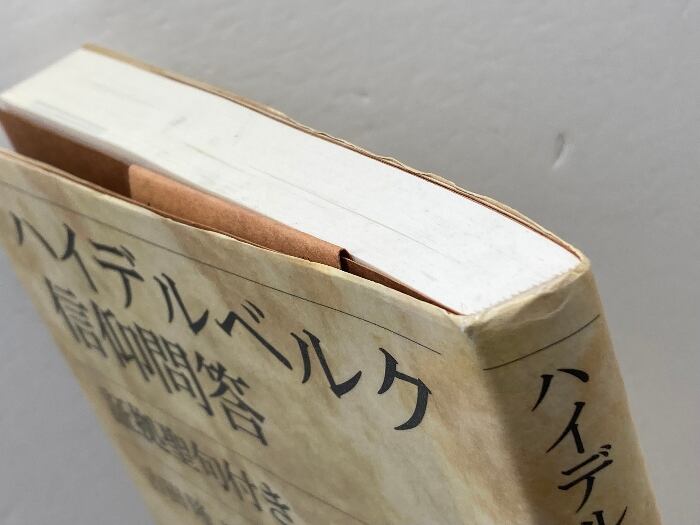 ハイデルベルク
信仰問答
証拠聖句付き
ハイデル